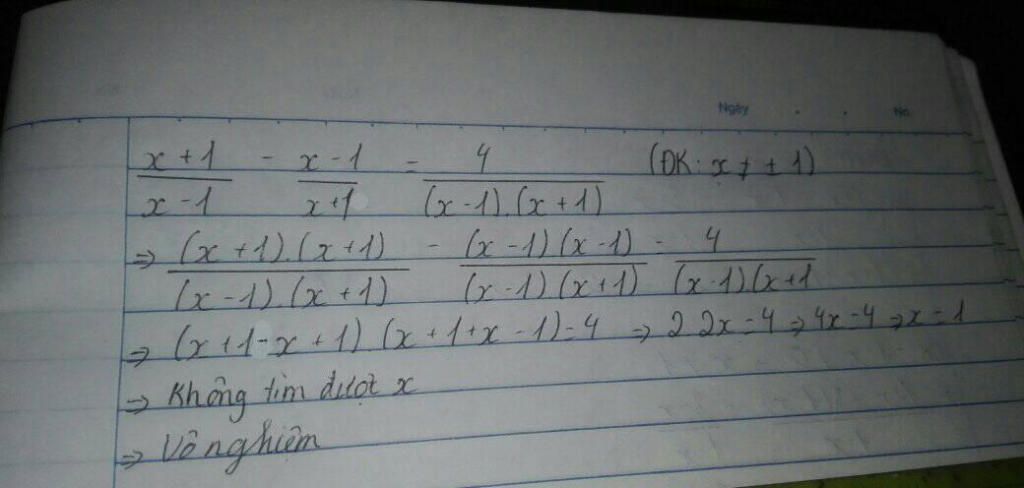 Ngày . . No.
x+1/x-1 - x-1/x+1 = 4/(x-1).(x+1) (ĐK: x ≠ ± 1)
⇒ (x+1).(x+1)/(x-1)(x+1) - (x-1)(x-1)/(x-1)(x+1) = 4/(x-1)(x+1
⇒ (x+1-x+1)(x+1+x-1)=4 ⇒ 2.2x=4 ⇒ 4x=4 ⇒ x=1
⇒ Không tìm được x
⇒ Vô nghiệm